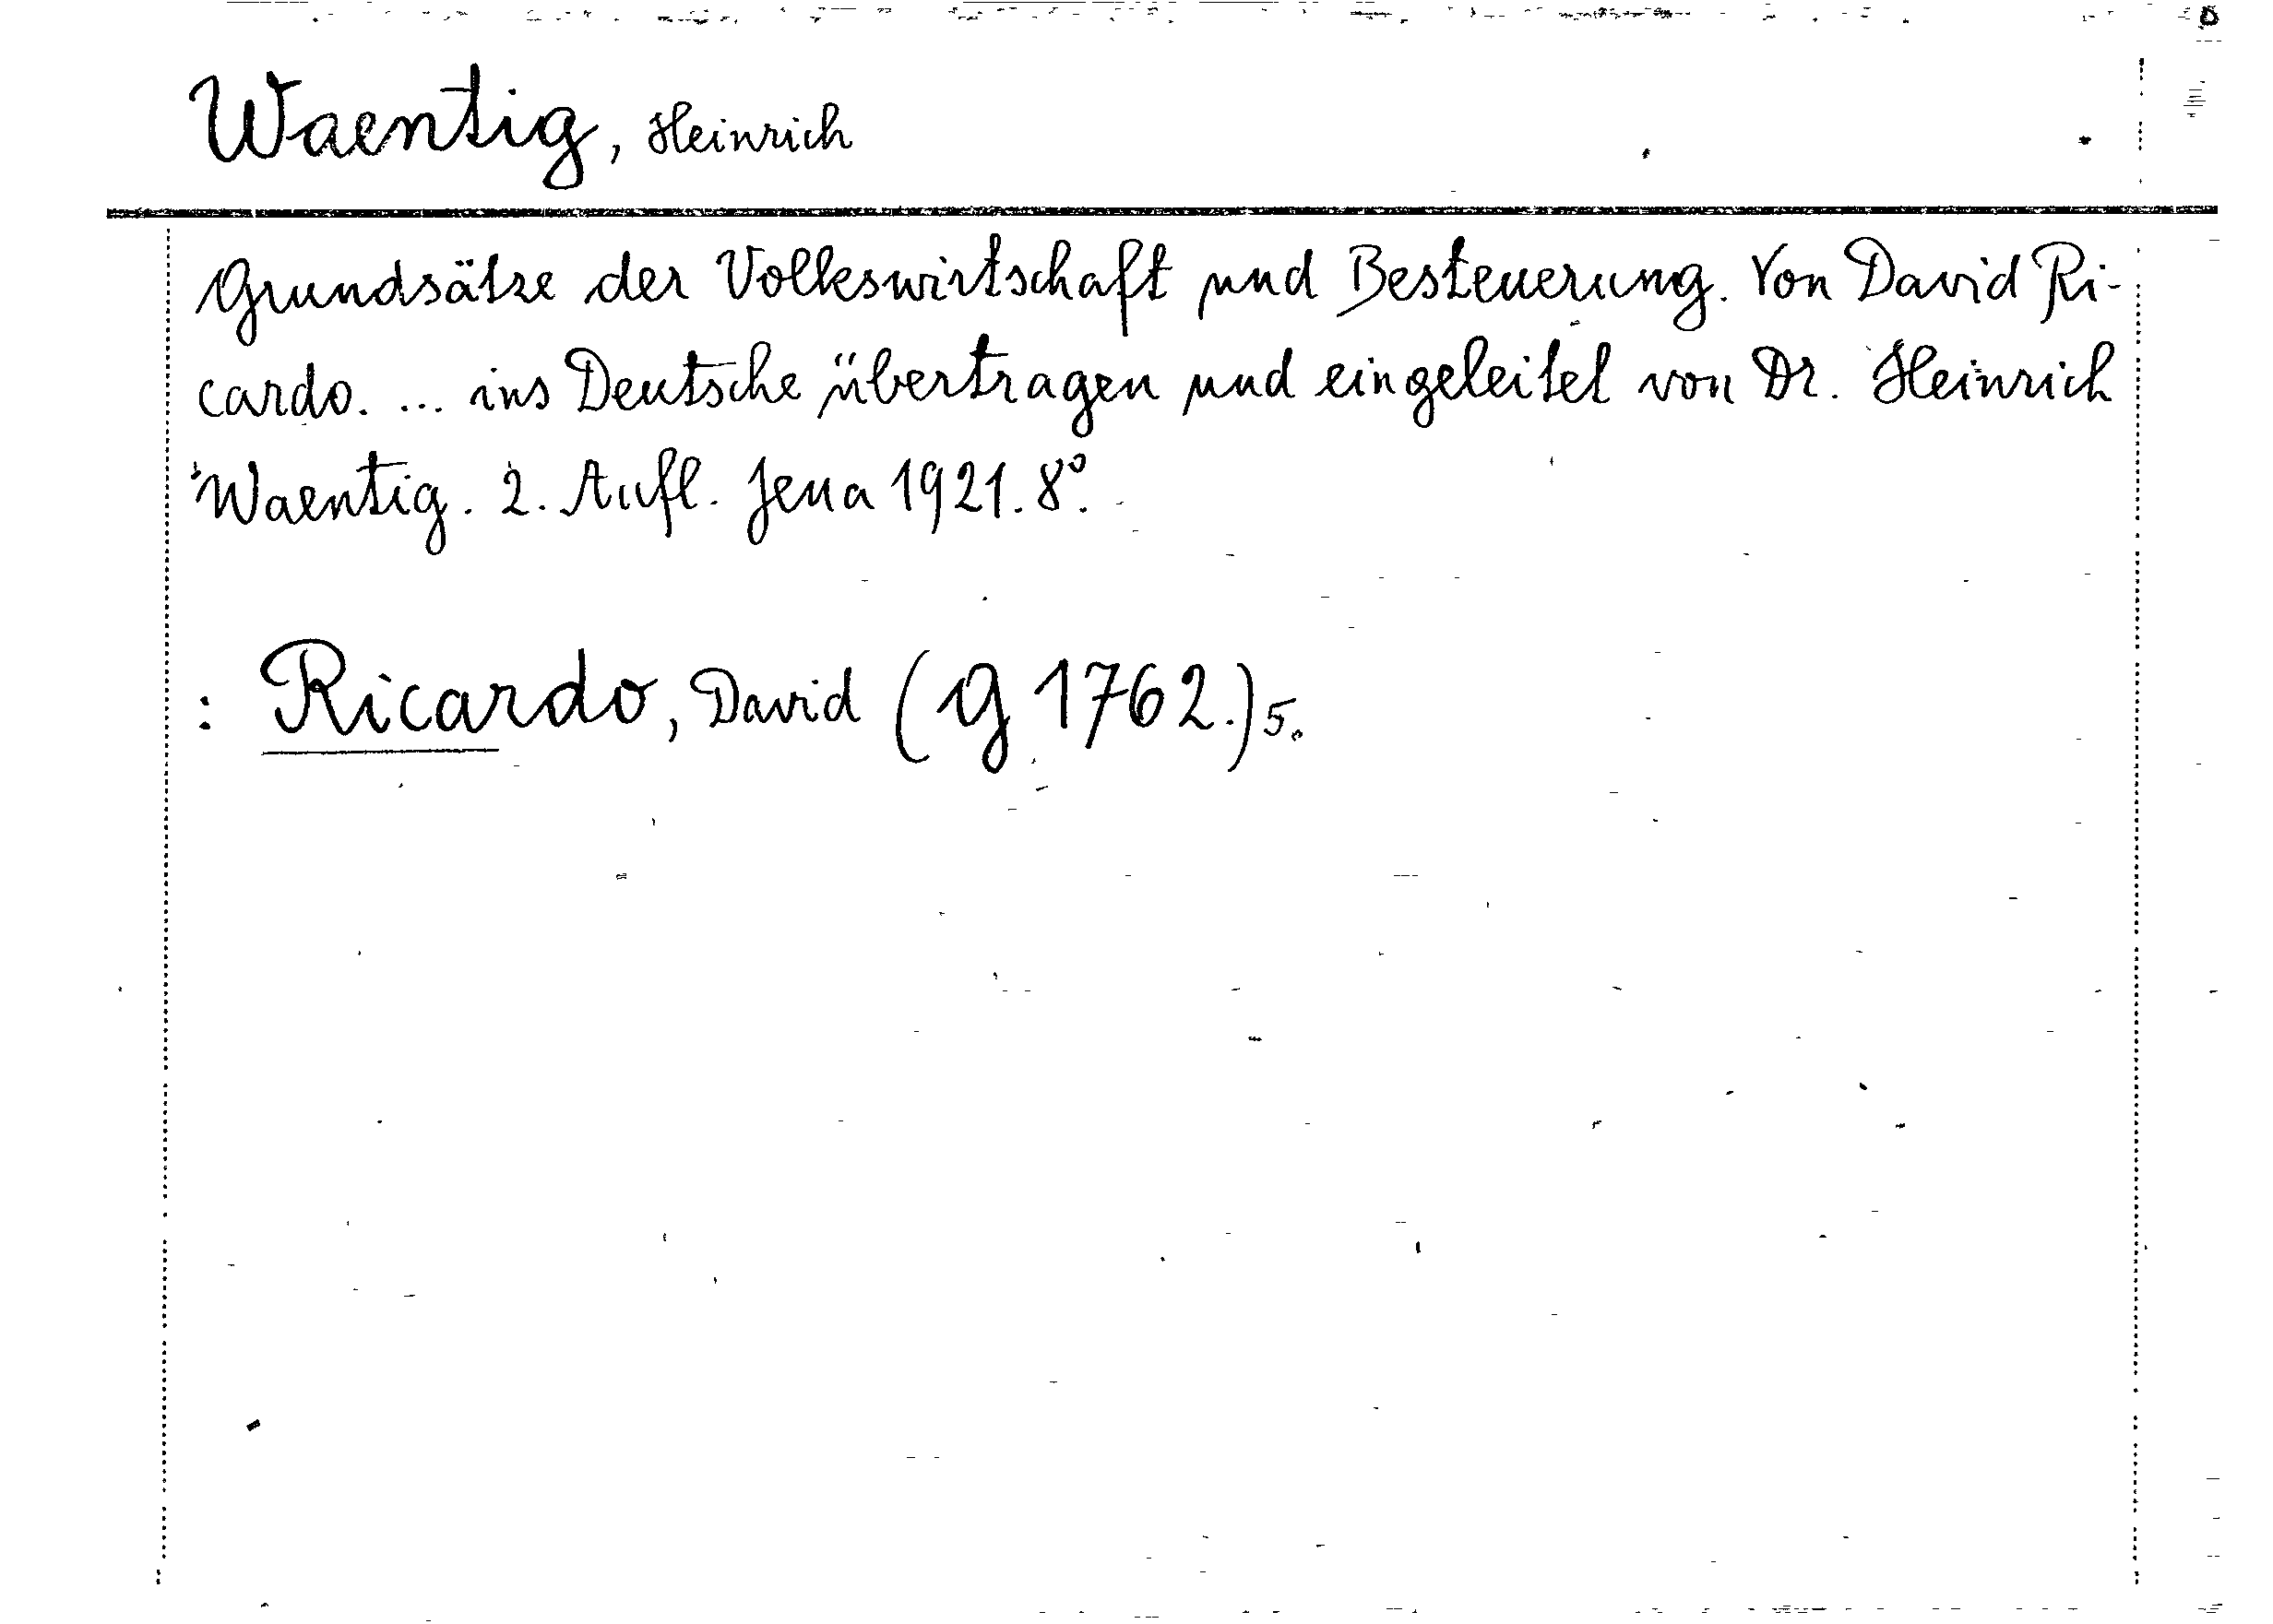 Waentig, Heinrich
Grundsätze der Volkswirtschaft und Besteuerung. Von David Ri-
cardo. ... ins Deutsche übertragen und eingeleitet von Dr. Heinrich
Waentig. 2. Aufl. Jena 1921. 8°.
: Ricardo, David (g 1762.) 5.